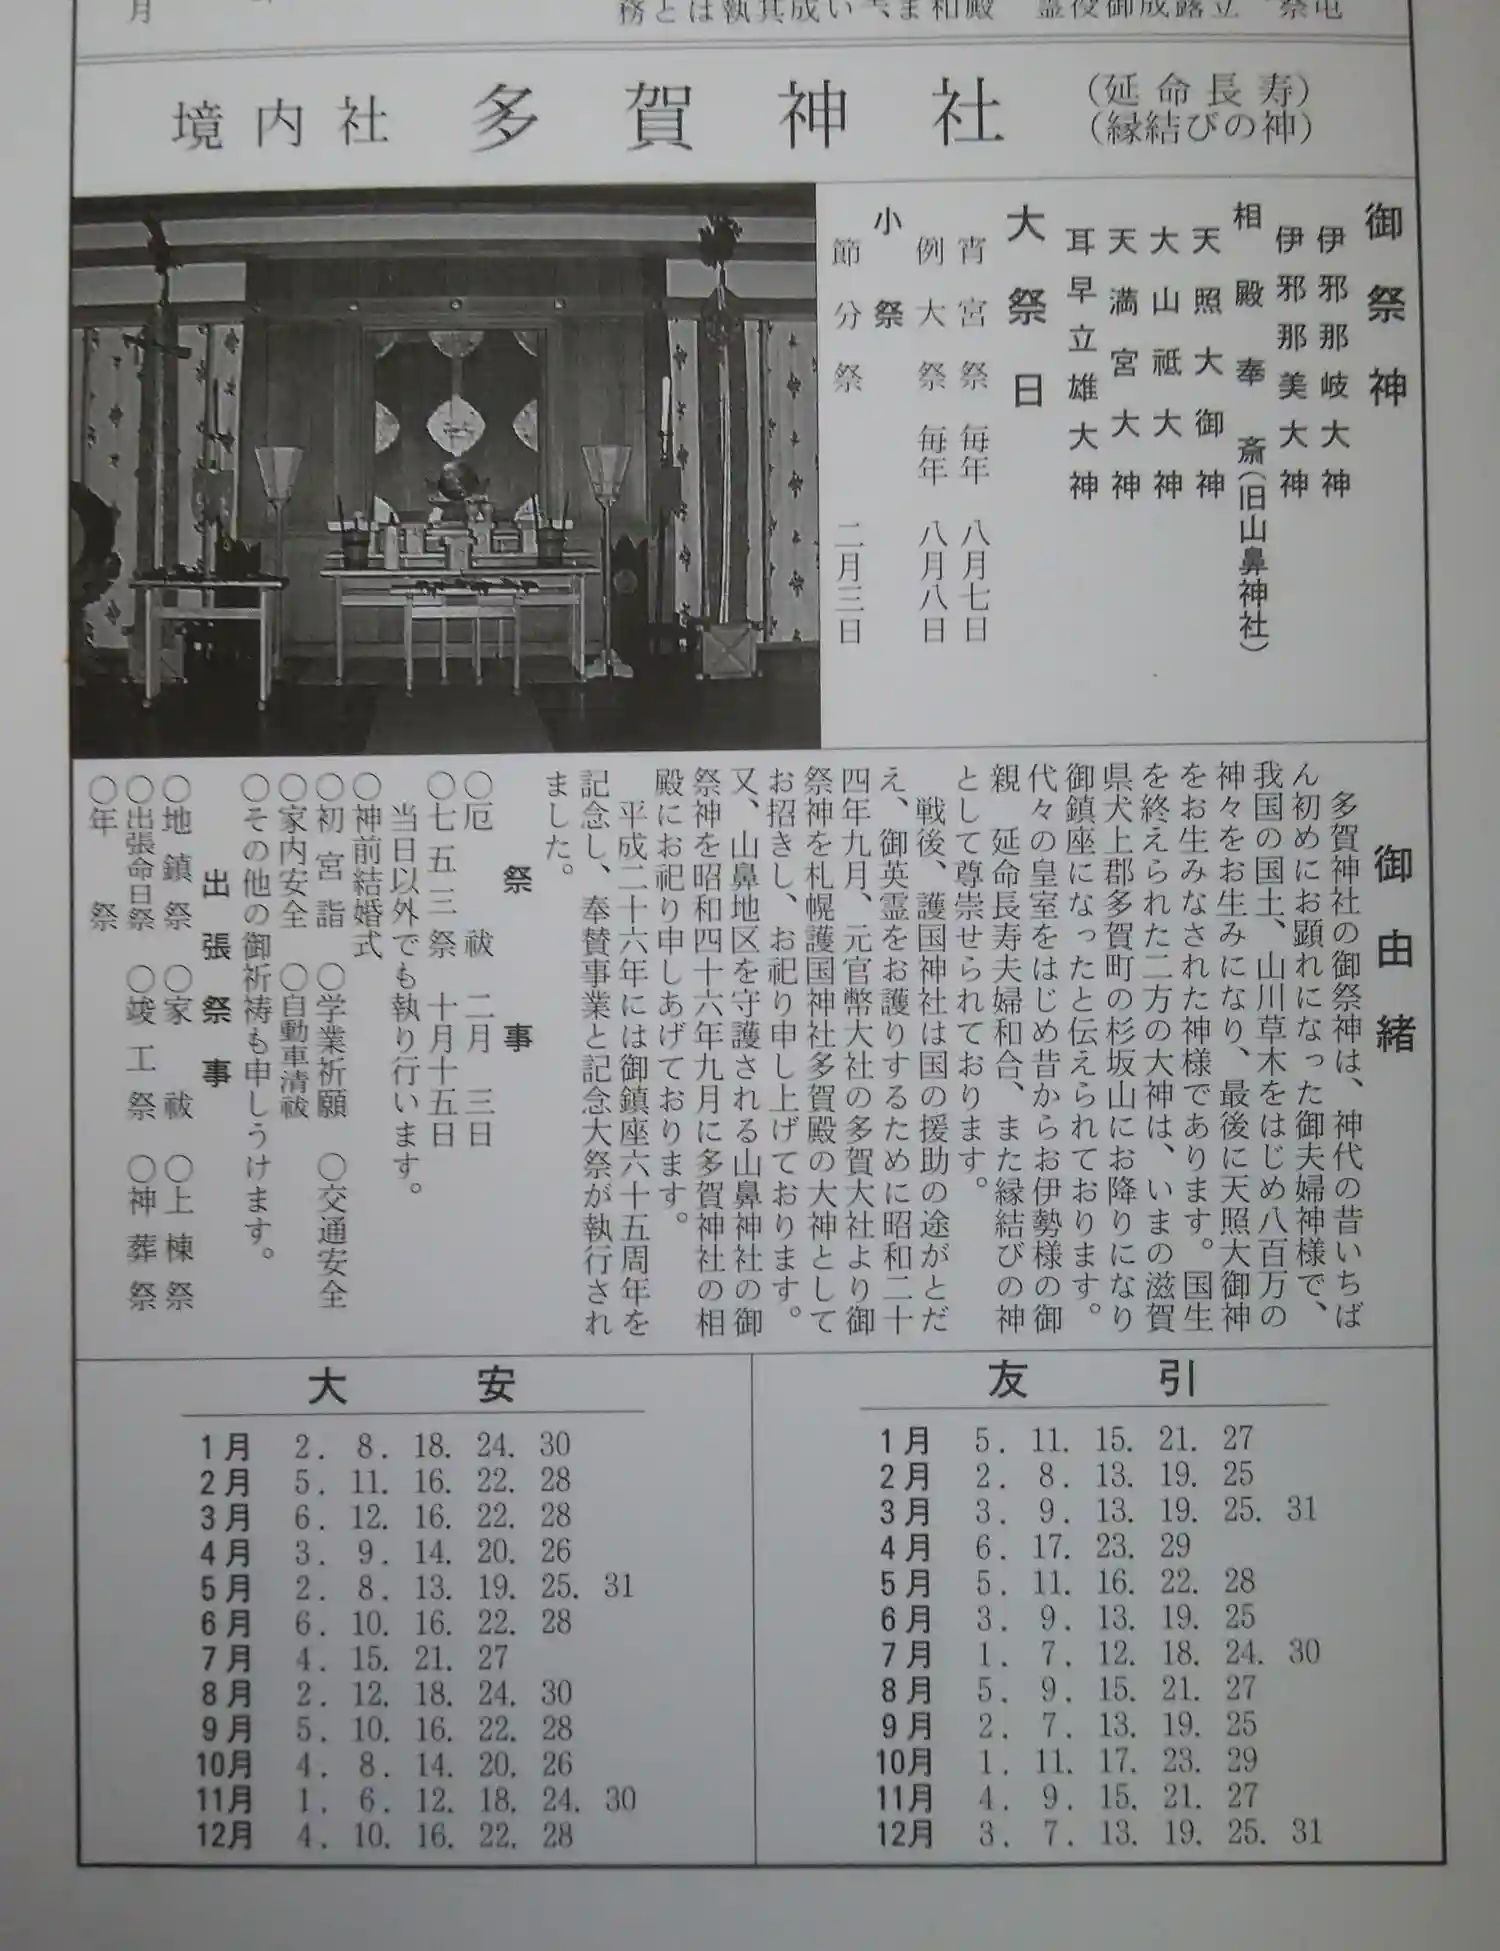 境内社 多賀神社 (延命長寿)
(縁結びの神)
御祭神
伊邪那岐大神
伊邪那美大神
相殿奉斎(旧山鼻神社)
天照大御神
大山祗大神
天満宮大神
耳早立雄大神
大祭日
宵宮祭 毎年 八月七日
例大祭 毎年 八月八日
小祭
節分祭 二月三日
御由緒
多賀神社の御祭神は、神代の昔いちば
ん初めにお顕れになった御夫婦神様で、
我国の国土、山川草木をはじめ八百万の
神々をお生みになり、最後に天照大御神
をお生みなされた神様であります。国生
を終えられた二方の大神は、いまの滋賀
県犬上郡多賀町の杉坂山にお降りになり
御鎮座になったと伝えられております。
代々の皇室をはじめ昔からお伊勢様の御
親 延命長寿夫婦和合、また縁結びの神
として尊崇せられております。
戦後、護国神社は国の援助の途がとだ
え、御英霊をお護りするために昭和二十
四年九月、元官幣大社の多賀大社より御
祭神を札幌護国神社多賀殿の大神として
お招きし、お祀り申し上げております。
又、山鼻地区を守護される山鼻神社の御
祭神を昭和四十六年九月に多賀神社の相
殿にお祀り申しあげております。
平成二十六年には御鎮座六十五周年を
記念し、奉賛事業と記念大祭が執行され
ました。
祭事
○厄祓 二月三日
○七五三祭 十月十五日
当日以外でも執り行います。
○神前結婚式
○初宮詣 ○学業祈願 ○交通安全
○家内安全 ○自動車清祓
○その他の御祈祷も申しうけます。
出張祭事
○地鎮祭 ○家祓 ○上棟祭
○出張命日祭 ○竣工祭 ○神葬祭
○年祭
大安
1月 2. 8. 18. 24. 30
2月 5. 11. 16. 22. 28
3月 6. 12. 16. 22. 28
4月 3. 9. 14. 20. 26
5月 2. 8. 13. 19. 25. 31
6月 6. 10. 16. 22. 28
7月 4. 15. 21. 27
8月 2. 12. 18. 24. 30
9月 5. 10. 16. 22. 28
10月 4. 8. 14. 20. 26
11月 1. 6. 12. 18. 24. 30
12月 4. 10. 16. 22. 28
友引
1月 5. 11. 15. 21. 27
2月 2. 8. 13. 19. 25
3月 3. 9. 13. 19. 25. 31
4月 6. 17. 23. 29
5月 5. 11. 16. 22. 28
6月 3. 9. 13. 19. 25
7月 1. 7. 12. 18. 24. 30
8月 5. 9. 15. 21. 27
9月 2. 7. 13. 19. 25
10月 1. 11. 17. 23. 29
11月 4. 9. 15. 21. 27
12月 3. 7. 13. 19. 25. 31